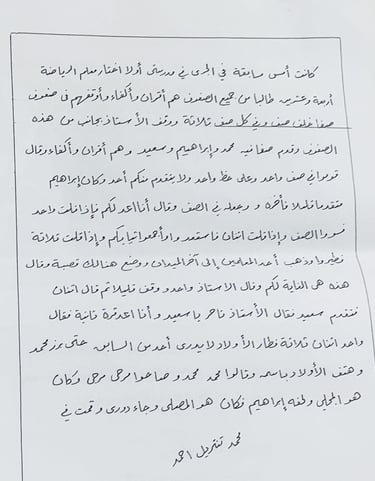 كانت أمس مسابقة في الجرى في مدرستى أولا اختار معلم الرياضة
أربعة وعشرين طالبا من جميع الصفوف هم أقران وأكفاء وأوقفهم فى صفوف
صفا خلف صف وفي كل صف ثلاثة ووقف الأستاذ بجانب من هذه
الصفوف وقدم صفا فيه محمد وإبراهيم وسعيد وهم أقران وأكفاء وقال
قوموا في صف واحد وعلى خط واحد ولا يتقدم منكم أحد وكان إبراهيم
متقدما قليلا فأخره وجعله في الصف وقال أنا أعد لكم فإذا قلت واحد
فسووا الصف وإذا قلت اثنان فاستعدوا وأجمعوا ثيابكم وإذا قلت ثلاثة
فطيروا وذهب أحد المعلمين إلى آخر الميدان ووضع هنالك قصبة وقال
هذه هى الغاية لكم وقال الاستاذ واحد ووقف قليلا ثم قال اثنان
فتقدم سعيد فقال الأستاذ تأخر يا سعيد وأنا اعد مرة ثانية فقال
واحد اثنان ثلاثة فطار الأولاد لا يدرى أحد من السابق حتى برز محمد
وهتف الأولاد باسمه وقالوا محمد محمد وصاحوا مرحى مرحى وكان
هو المجلى ولحقه إبراهيم فكان هو المصلى وجاء دورى وقمت في
محمد تنزيل احمد